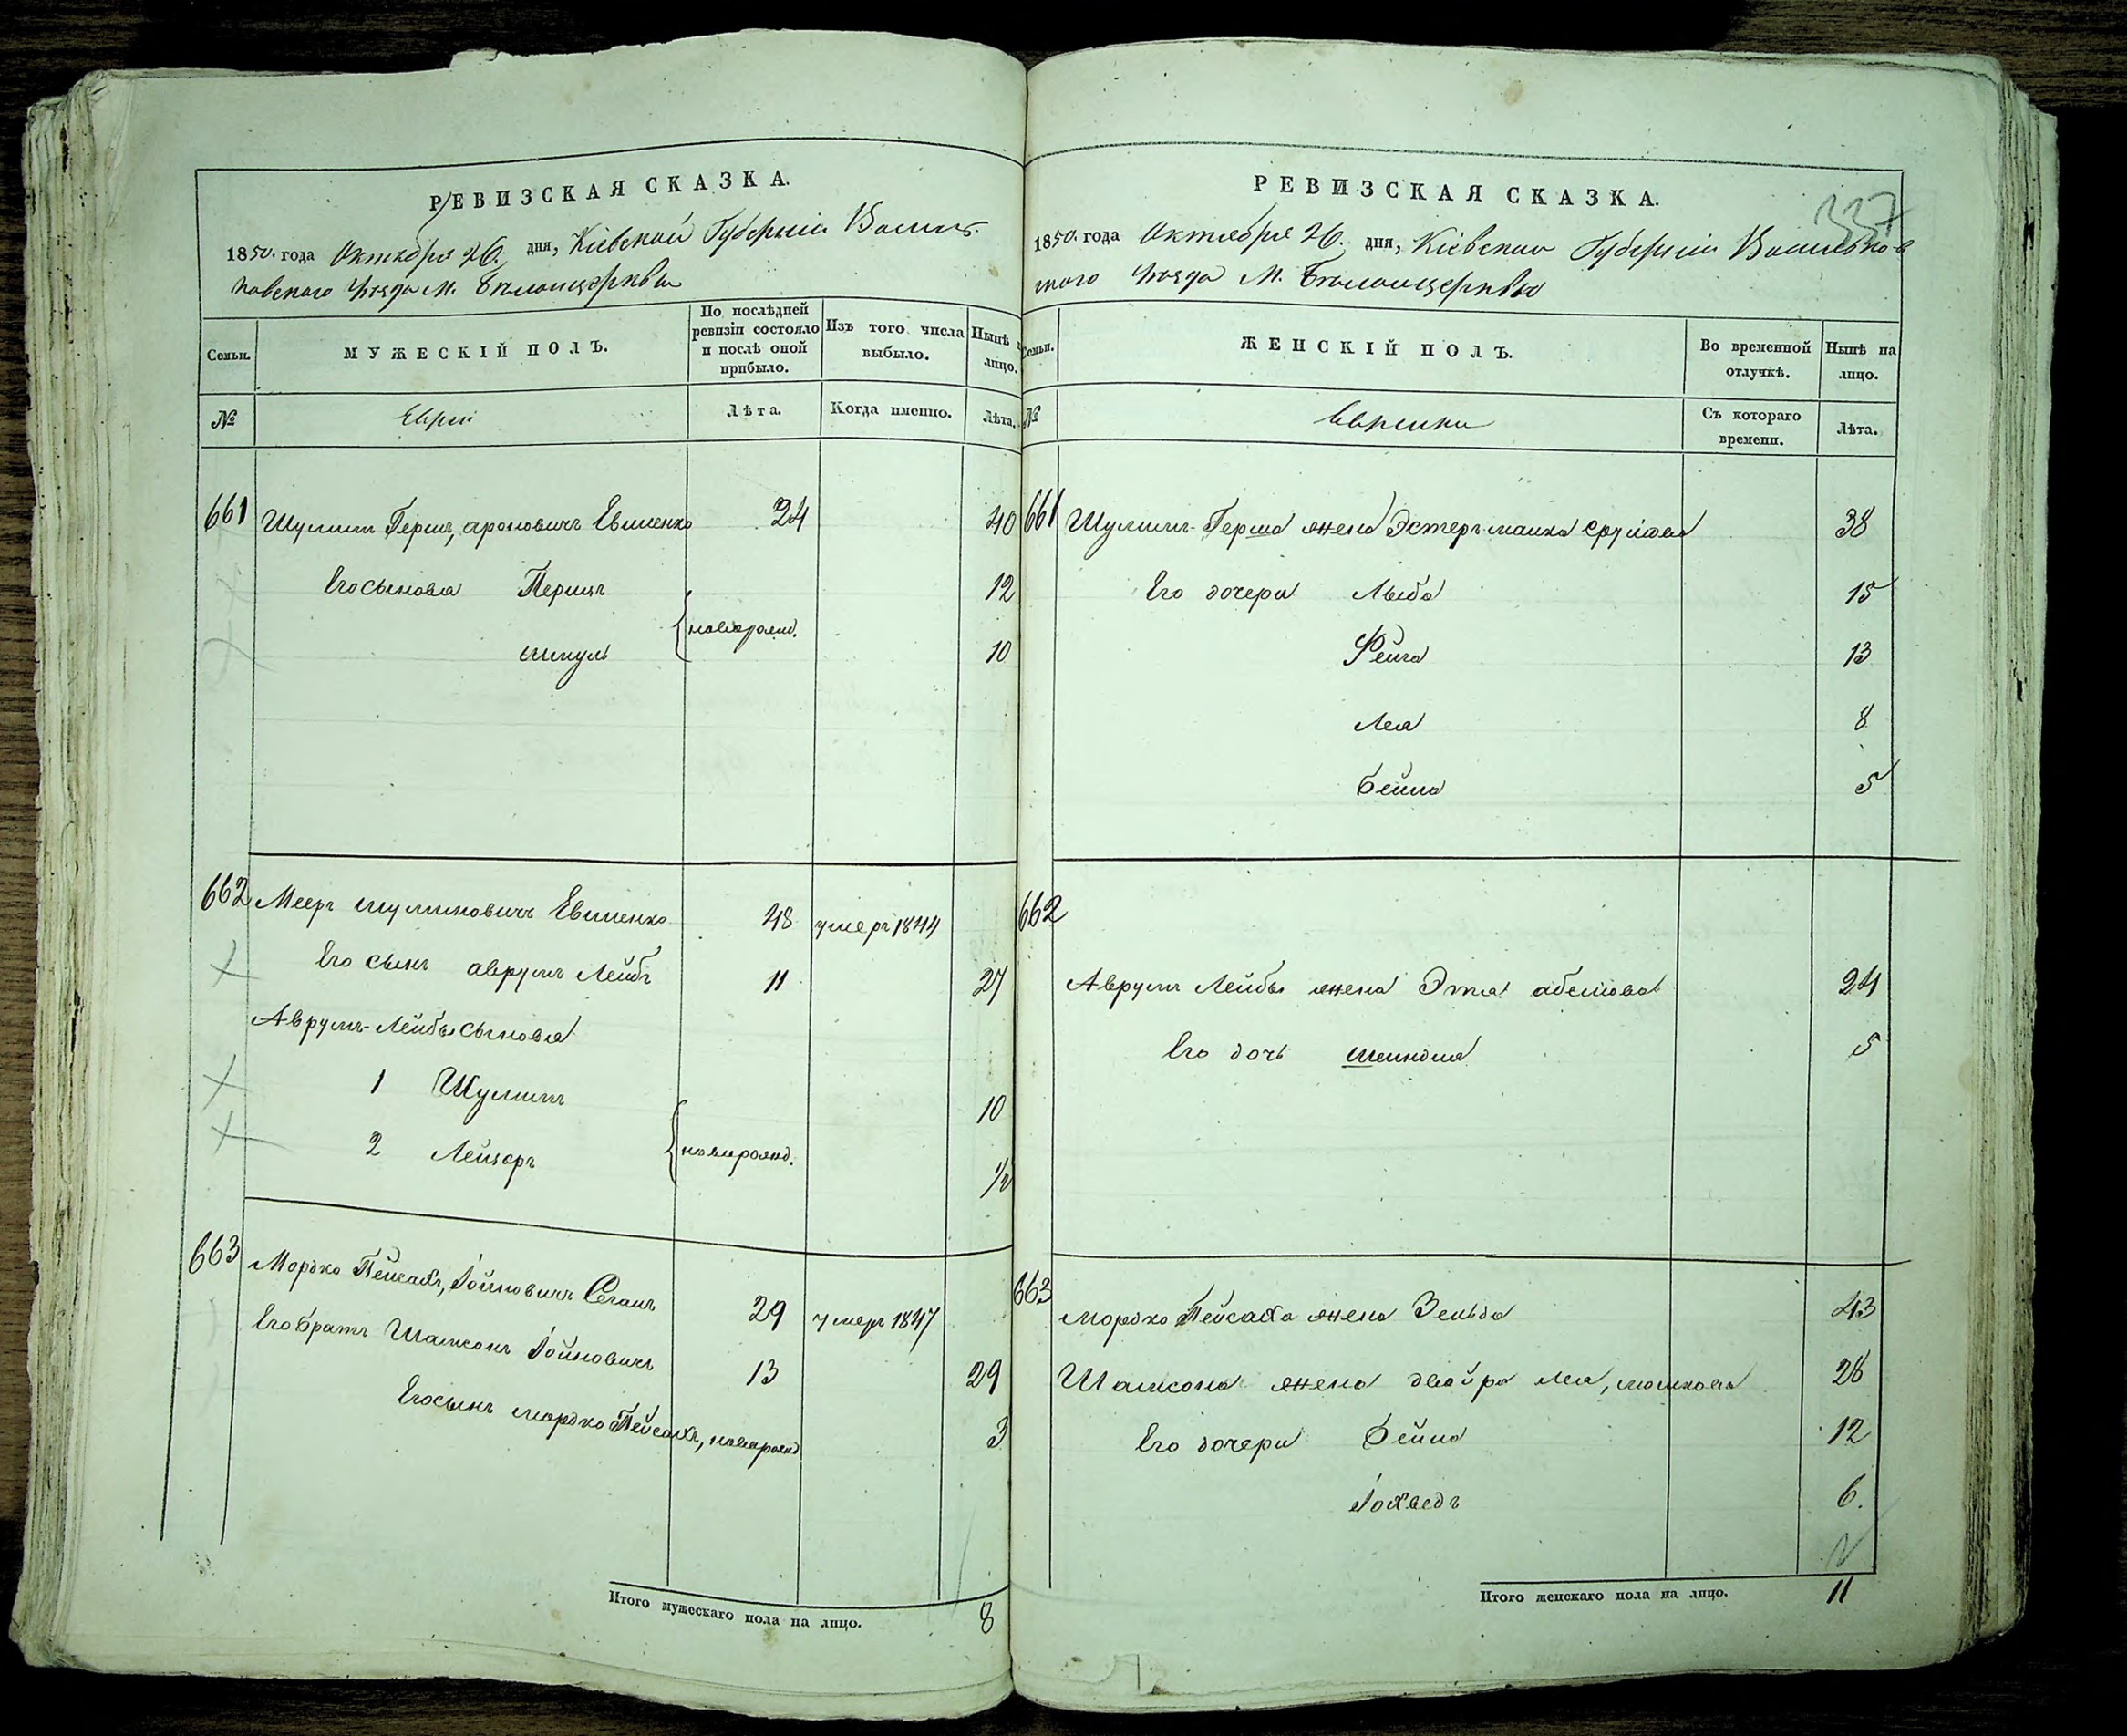 РЕВИЗСКАЯ СКАЗКА.
1850. года Октября 26. дня, Кіевской Губерніи Василь-
ковскаго Уѣзда М. Бѣлоицерквы
Семьи.
МУЖЕСКІЙ ПОЛЪ.
По послѣдней ревизіи состояло и послѣ оной прибыло.
Изъ того числа выбыло.
Нынѣ на лицо.
№
Евреи
Лѣта.
Когда именно.
Лѣта.
661 Шулимъ Гершъ, ароновичъ Евшенко 24 40
Его сыновья Перецъ 12
новорожд.
шмуль 10
662 Мееръ шулимовичъ Евшенко 48 умеръ 1844
Его сынъ аврумъ Лейбъ 11 27
Аврумъ-Лейбы сыновья
1 Шулимъ 10
2 Лейзоръ новорожд. 1/2
663 Мордко Пейсахъ, Іойновичъ 29 умеръ 1847
Его братъ Шамсонъ Іойновичъ 13 29
Его сынъ мордко Пейсахъ, новорожд 3
Итого мужескаго пола на лицо. 8
РЕВИЗСКАЯ СКАЗКА.
337
1850. года Октября 26. дня, Кіевской Губерніи Васильков
скаго Уѣзда М. Бѣлоицерквы
Семьи.
ЖЕНСКІЙ ПОЛЪ.
Во временной отлучкѣ.
Нынѣ на лицо.
№
Еврейки
Съ котораго времени.
Лѣта.
661 Шулимъ-Герша жена Эстеръ-малка срулова 38
Его дочери Лыба 15
Фейга 13
Лея 8
Бейла 5
662
Аврумъ Лейбы жена Этя абелова 24
Его дочь шейндля 5
663
мордко Пейсаха жена Зельда 43
Шамсона жена двойра леа, мошкова 28
Его дочери Бейла 12
Іохведъ 6.
Итого женскаго пола на лицо. 11